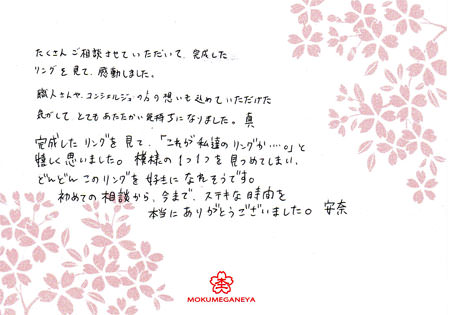 たくさんご相談させていただいて、完成した
リングを見て、感動しました。
職人さんや、コンシェルジュの方の想いも込めていただけた
気がして とてもあたたかい気持ちになりました。真
完成したリングを見て、「これが私達のリングか…。」と
嬉しく思いました。模様の1つ1つを見つめてしまい、
どんどんこのリングを好きになれそうです。
初めての相談から、今まで、ステキな時間を
本当にありがとうございました。 安奈
MOKUMEGANEYA